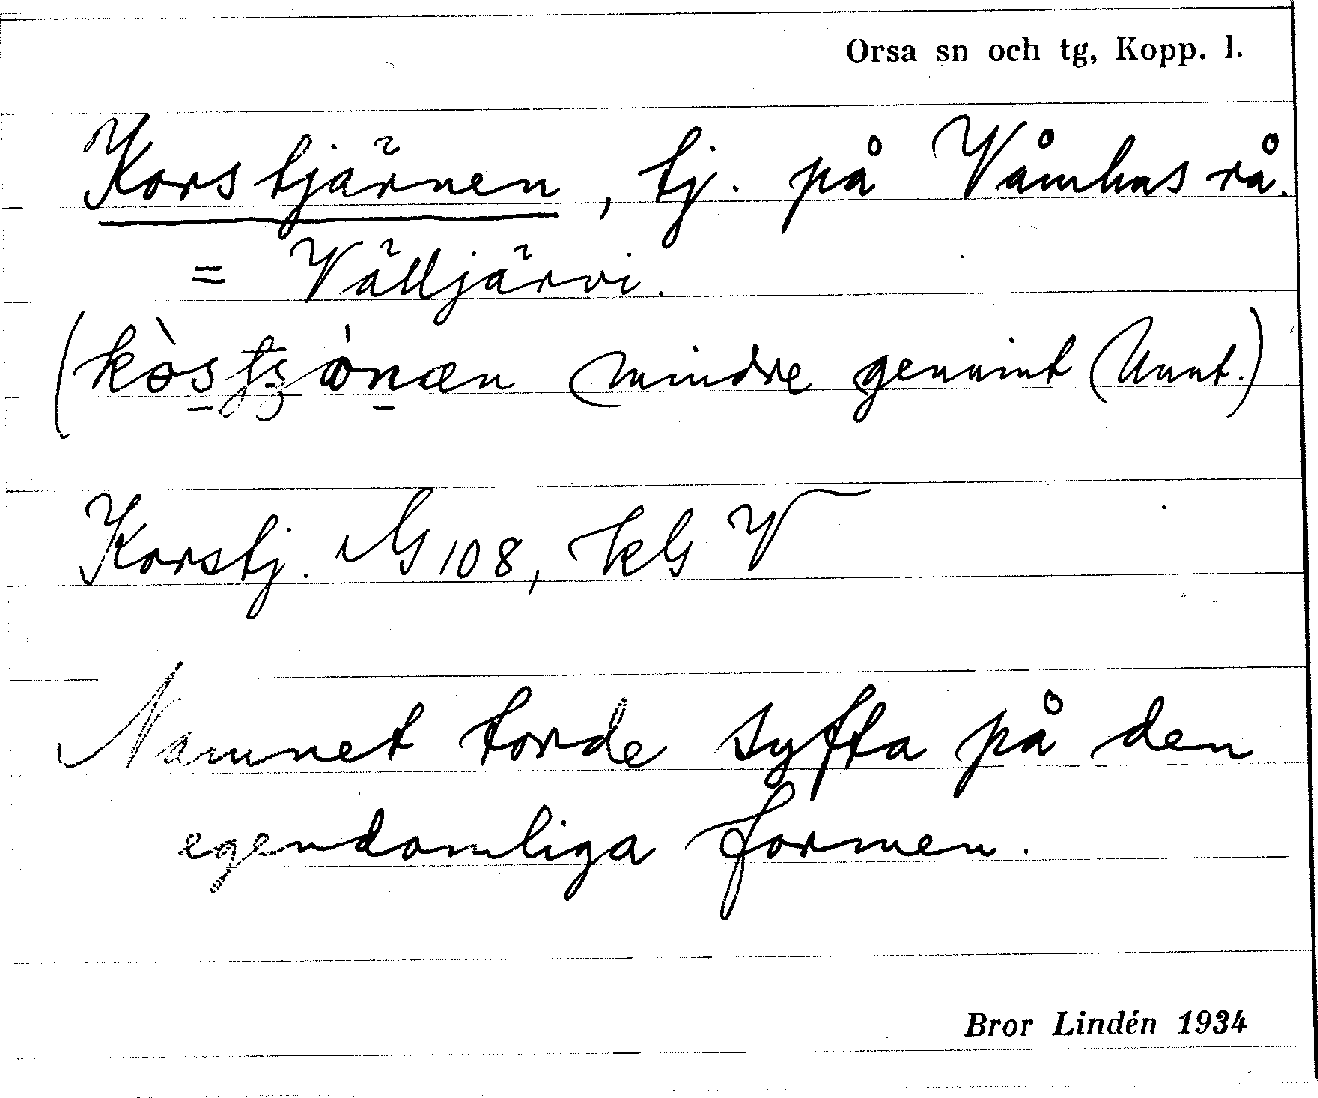 Orsa sn och tg, Kopp. l.
Korstjärnen, tj. på Våmhus rå.
= Välljärvi.
mindre genuint (Uunt.)
Korstj. G 108, kG V
Namnet torde syfta på den
egendomliga formen.
Bror Lindén 1934